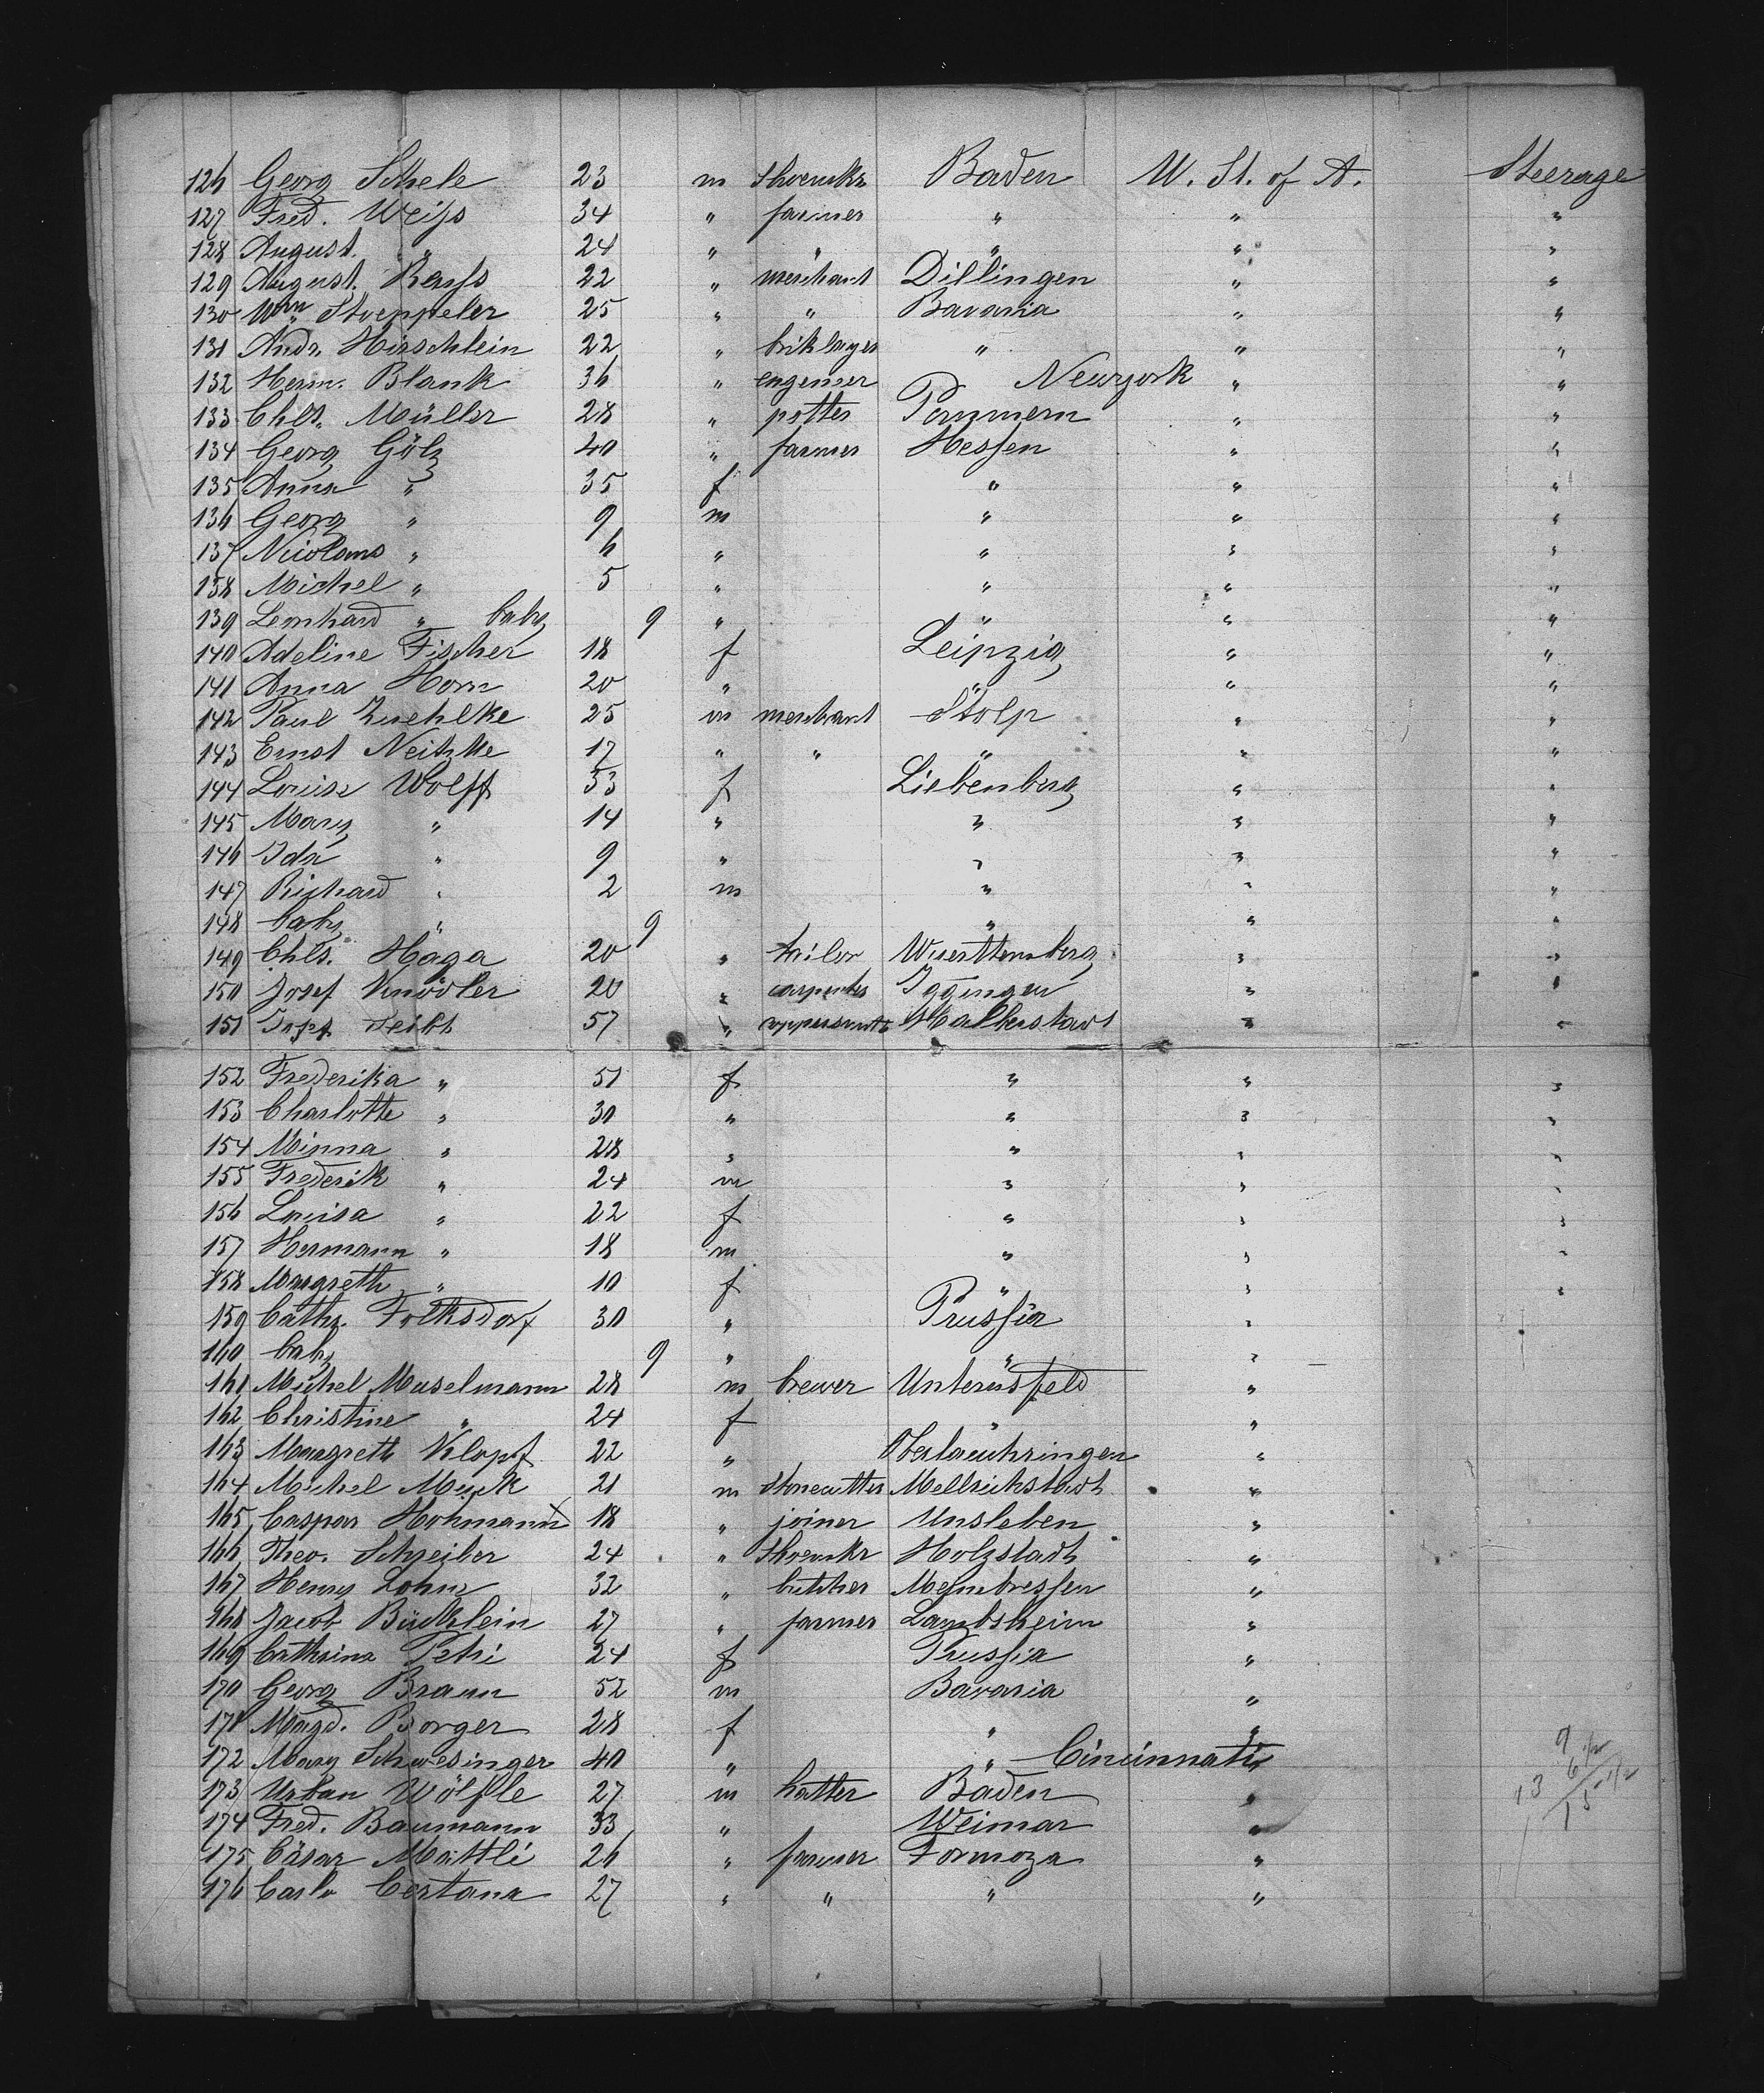 126 Georg Schele 23 m Shoemkr Baden U. St. of A. Steerage
127 Fred. Weiss 34 " farmer " " "
128 August. " 24 " " " " "
129 August. Reuss 22 " merchant Dillingen " "
130 Wm Stoeppeler 25 " " Bavaria " "
131 Andr. Hirschlein 22 " briklayer " " "
132 Herm. Blank 36 " engenier Newyork " "
133 Chls. Müller 28 " potter Pommern " "
134 Georg Gölz 40 " farmer Hessen " "
135 Anna " 35 f " " "
136 Georg " 9 m " " "
137 Nicolaus " 6 " " " "
138 Michel " 5 " " " "
139 Lenhard " baby 9 " " " "
140 Adeline Fischer 18 f Leipzig " "
141 Anna Horn 20 " " " "
142 Paul Zuehlke 25 m merchant Stolp " "
143 Ernst Neitzke 17 " " " " "
144 Louise Wolff 53 f Liebenberg " "
145 Mary " 14 " " " "
146 Ida " 9 " " " "
147 Richard " 2 m " " "
148 baby " 9 " " "
149 Chls. Häga 20 " tailor Wuerttemberg " "
150 Josef Knödler 20 " carpenter Iggingen " "
151 57 " Halberstadt " "
152 Frederika " 51 f " " "
153 Charlotte " 30 " " " "
154 Minna " 28 " " " "
155 Frederik " 24 m " " "
156 Louisa " 22 f " " "
157 Hermann " 18 m " " "
158 Margreth " 10 f " " "
159 Cathr. Folksdorf 30 " Prussia "
160 baby 9 " " "
161 Michel Muselmann 28 m brewer "
162 Christine " 24 f " "
163 Margreth Klopf 22 " "
164 Michel Muck 21 m Stonecutter Mellrichstadt "
165 Caspar Hohmann 18 " joiner Unsleben "
166 Theo. Schreiber 24 " Shoemkr Holzstadt "
167 Henry Lohm 32 " butcher "
168 Jacob Bücklein 27 " farmer Lambsheim "
169 Cathrina Petri 24 f Prussia "
170 Georg Braun 52 m Bavaria "
171 Magd. Borger 28 f " "
172 Mary Schwesinger 40 " " Cincinnati
173 Urban Wölfle 27 m hatter Baden "
174 Fred. Baumann 33 " Weimar "
175 Cäsar Mattli 26 " farmer Formoza "
176 Carlo Certana 27 " " " "